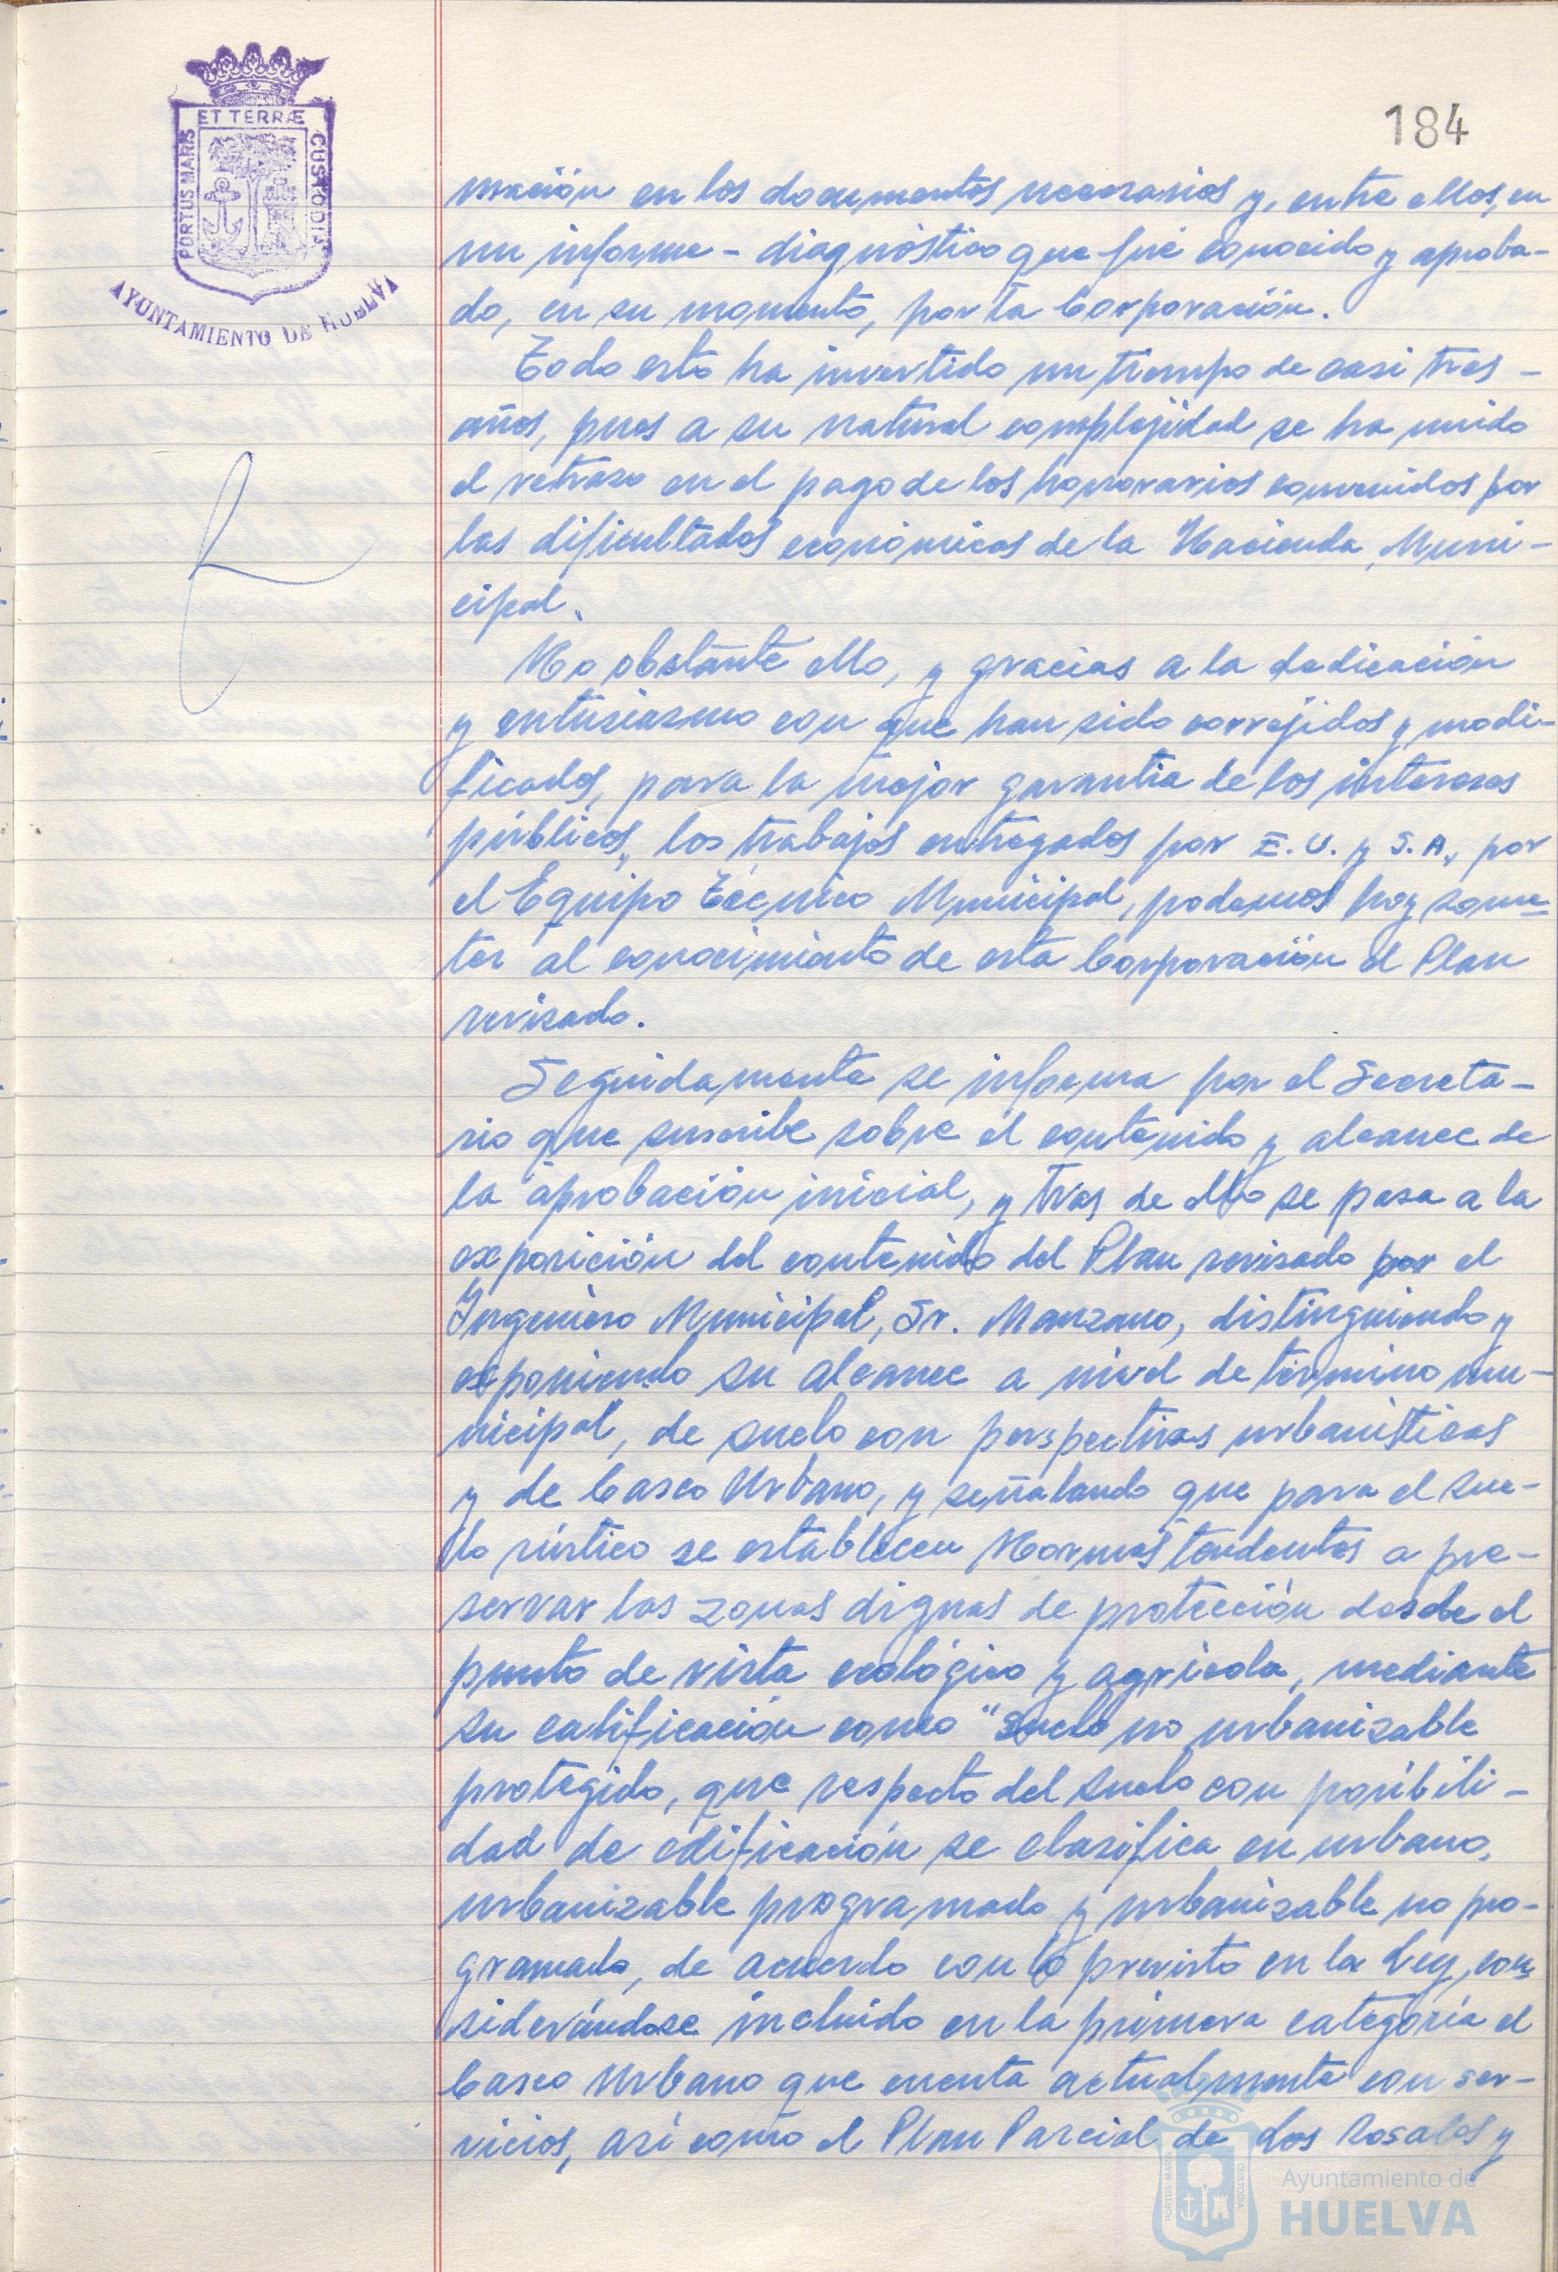 184
ET TERRÆ
PORTUS MARIS
CUSTODIA
AYUNTAMIENTO DE HUELVA
mación en los documentos necesarios y, entre ellos, en
un informe-diagnóstico que fué conocido y aproba-
do, en su momento, por la Corporación.
Todo esto ha invertido un tiempo de casi tres -
años, pues a su natural complejidad se ha unido
el retraso en el pago de los honorarios convenidos por
las dificultades económicas de la Hacienda Muni-
cipal.
No obstante ello, y gracias a la dedicación
y entusiasmo con que han sido corregidos y modi-
ficados, para la mejor garantía de los intereses
públicos, los trabajos entregados por E.U. y S.A., por
el Equipo Técnico Municipal, podemos hoy some-
ter al conocimiento de esta Corporación el Plan
revisado.
Seguidamente se informa por el Secreta-
rio que suscribe sobre el contenido y alcance de
la aprobación inicial, y tras de ello se pasa a la
exposición del contenido del Plan revisado por el
Ingeniero Municipal, Sr. Manzano, distinguiendo y
exponiendo su alcance a nivel de término mu-
nicipal, de suelo con perspectivas urbanísticas
y de Casco Urbano, y señalando que para el sue-
lo rústico se establecen Normas tendentes a pre-
servar las zonas dignas de protección desde el
punto de vista ecológico y agrícola, mediante
su calificación como "suelo no urbanizable
protegido, que respecto del suelo con posibili-
dad de edificación se clasifica en urbano,
urbanizable programado y urbanizable no pro-
gramado, de acuerdo con lo previsto en la Ley, con-
siderándose incluido en la primera categoría el
Casco Urbano que cuenta actualmente con ser-
vicios, así como el Plan Parcial de dos Rosales y
Ayuntamiento de
HUELVA